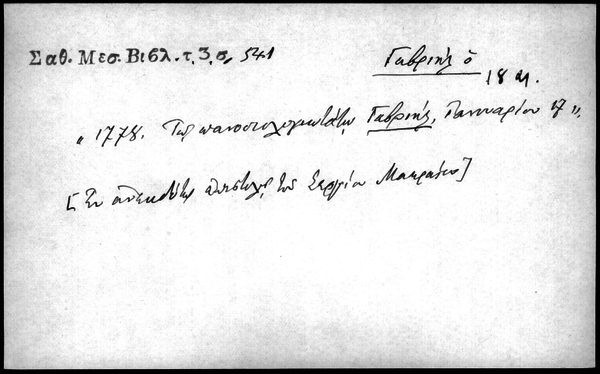 Σαθ. Μεσ. Βιβλ. τ. 3, σ. 541
Γαβριήλ ὁ
18 αι.
" 1778. Τῷ πανοσιολογιωτάτῳ Γαβριήλ, Ἰαννουαρίου 17 ".
[Ἐν ἀνεκδότῳ ἐπιστολῇ τοῦ Σεργίου Μακραίου]